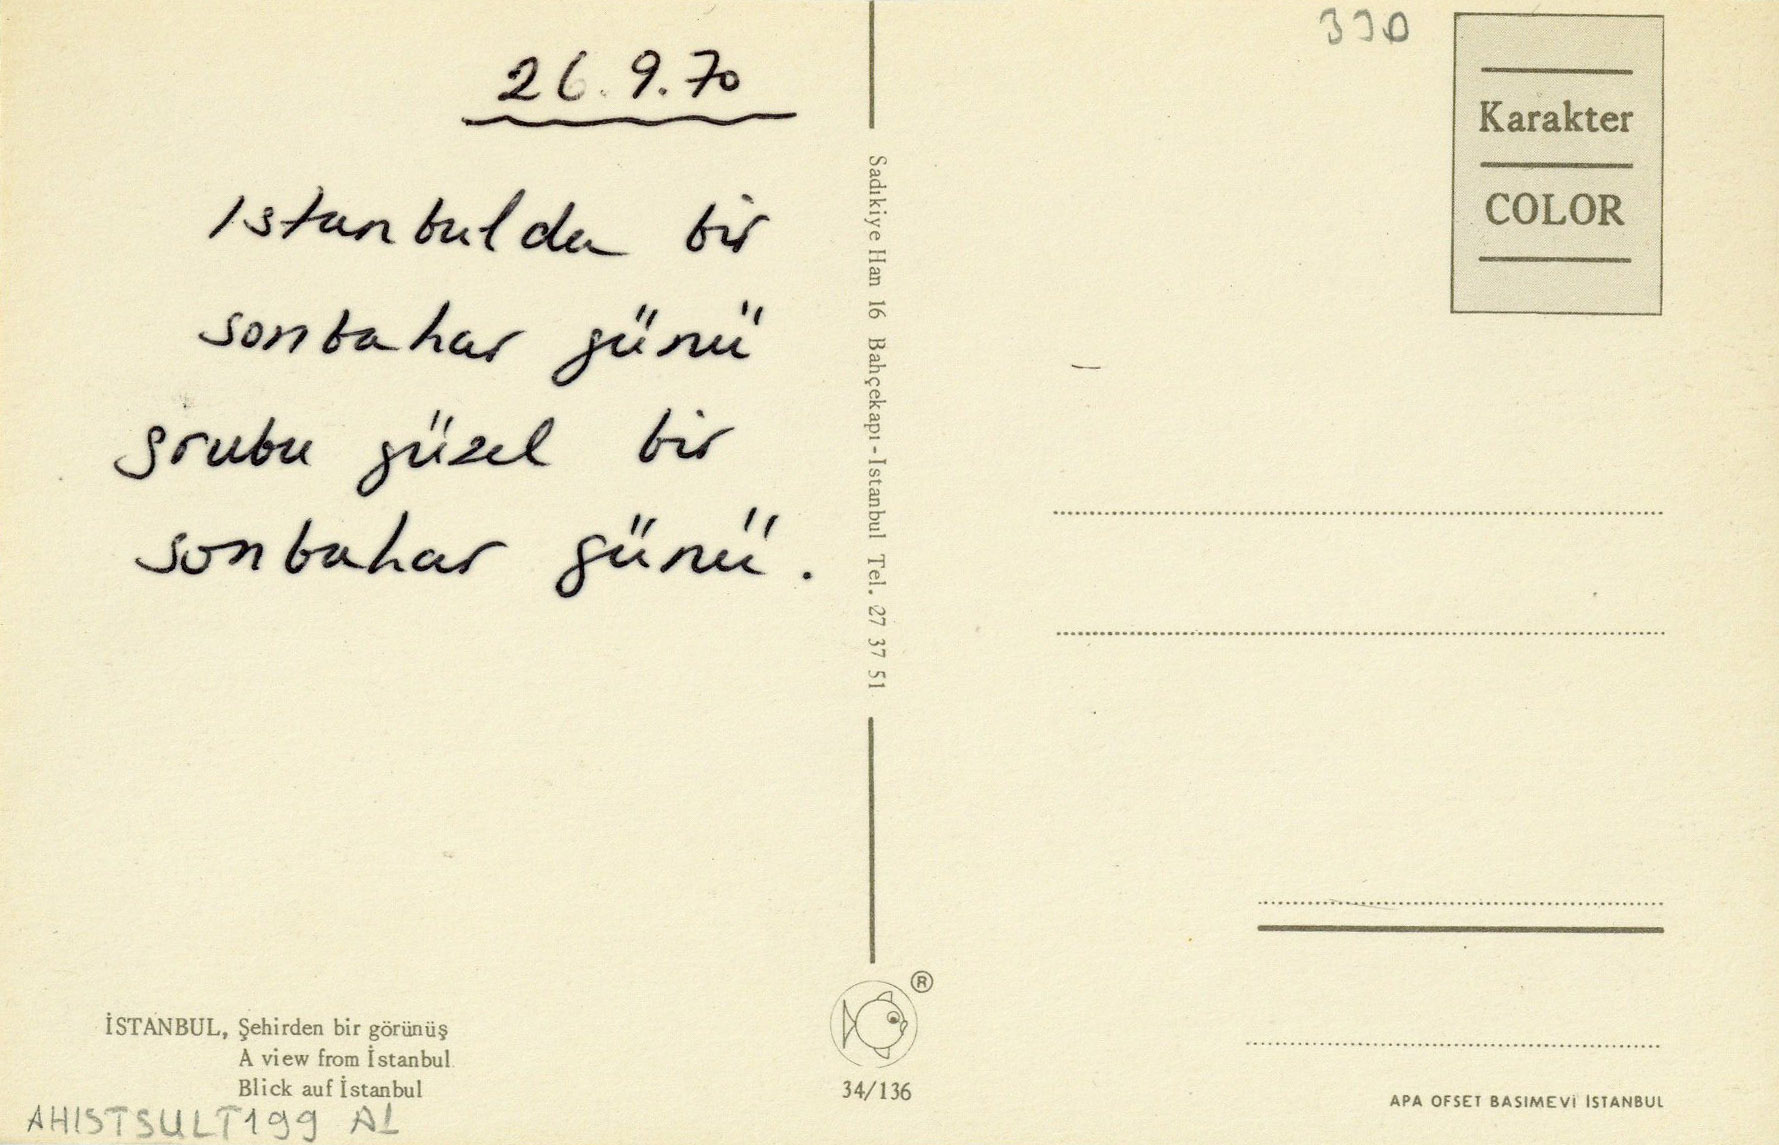 26.9.70
Istanbulda bir
sonbahar günü
grubu güzel bir
sonbahar günü.
İSTANBUL, Şehirden bir görünüş
A view from İstanbul
Blick auf İstanbul
AHISTSULT199 AL
Sadıkiye Han 16 Bahçekapı-Istanbul Tel. 27 37 51
®
34/136
330
Karakter
COLOR
APA OFSET BASIMEVİ İSTANBUL